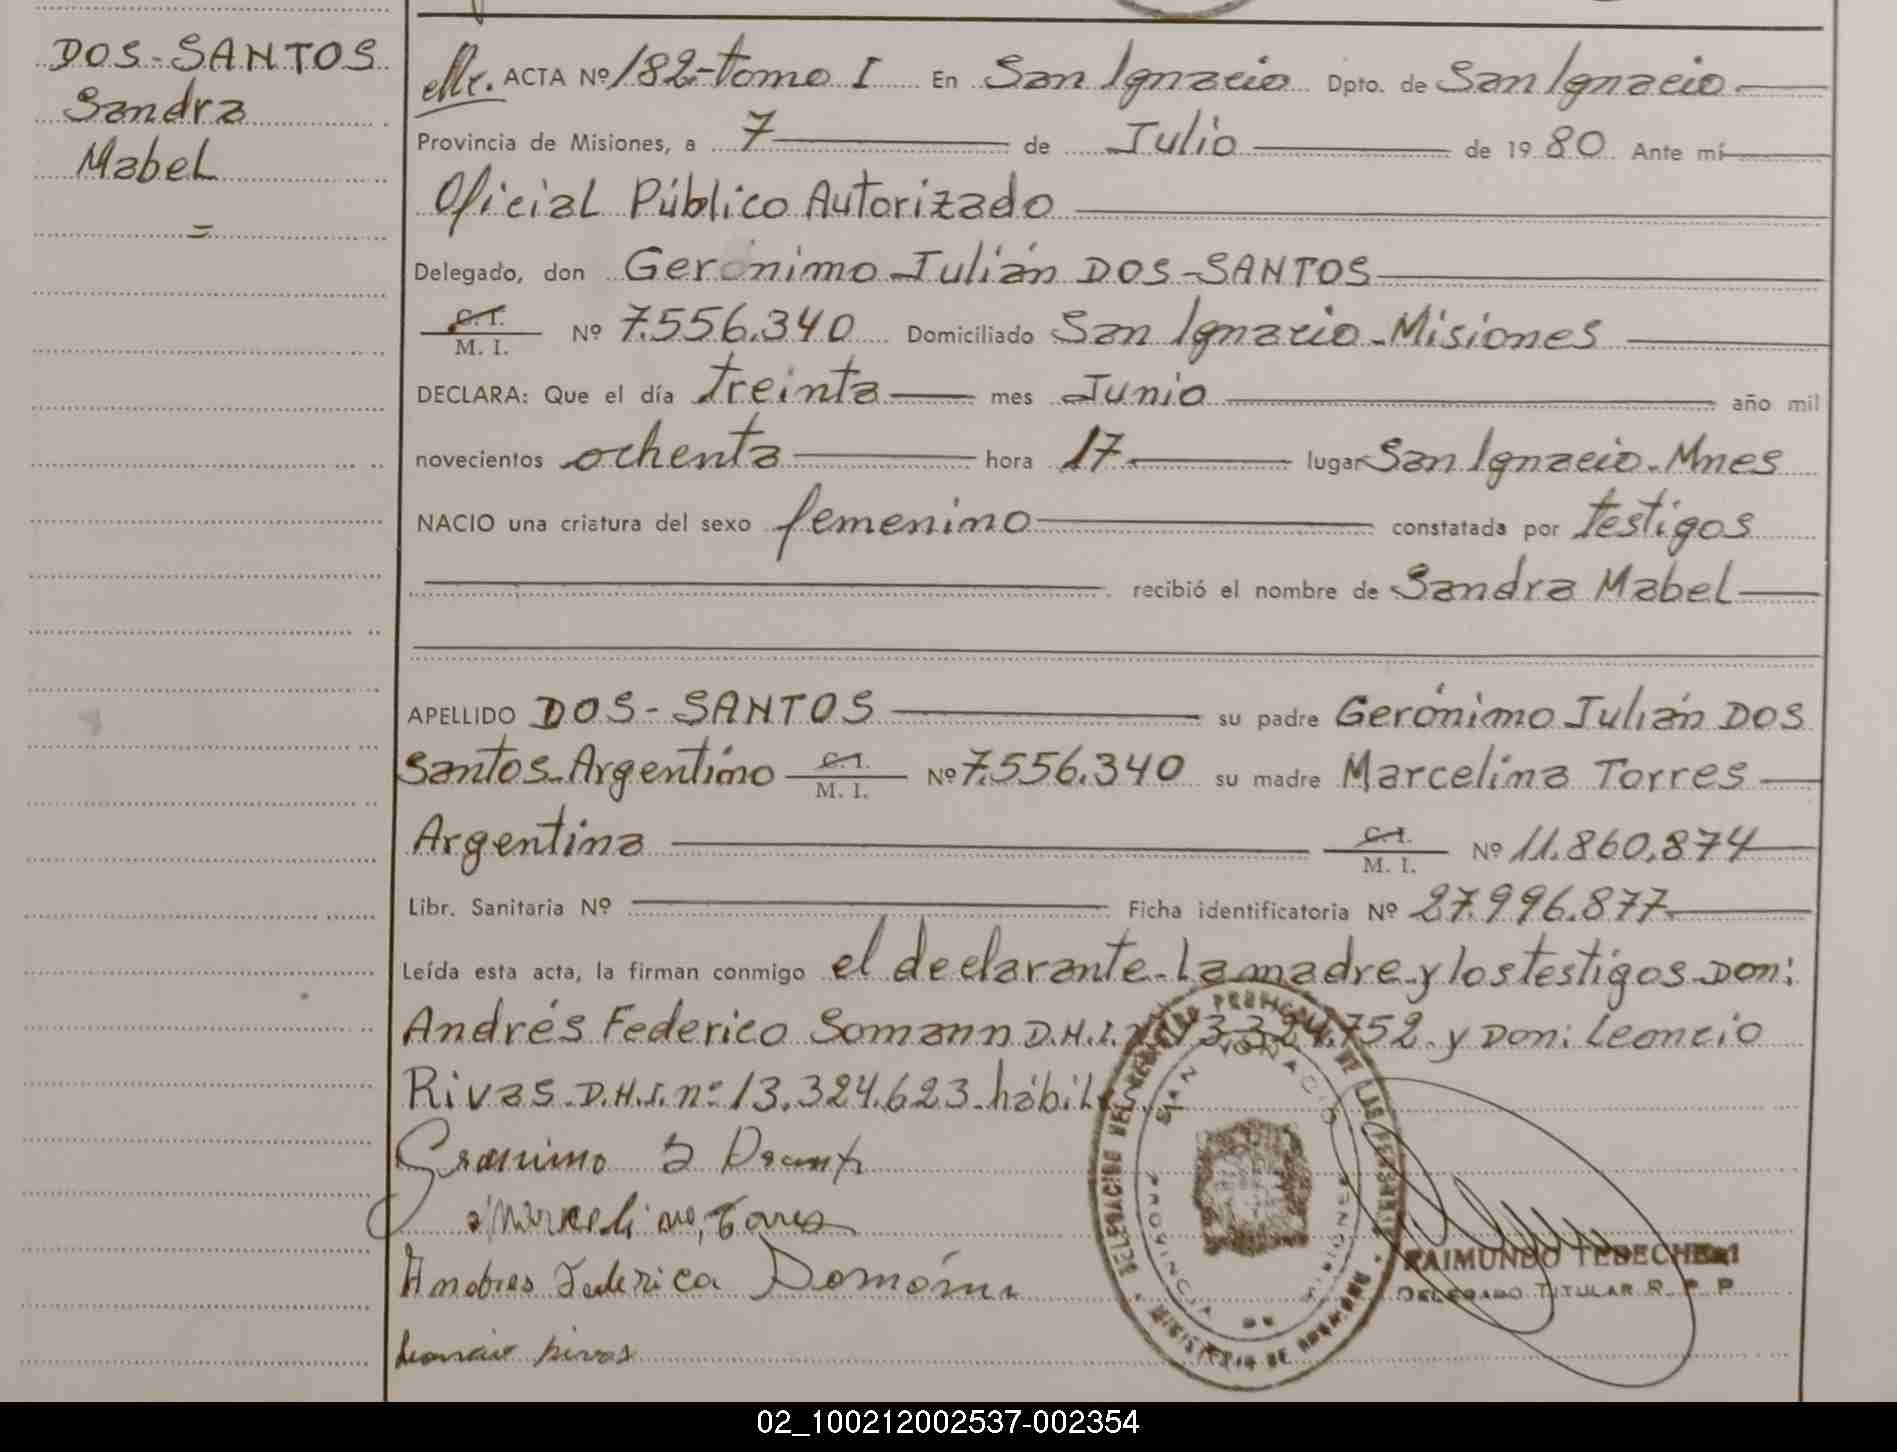 DOS-SANTOS
Sandra
Mabel
=
ACTA Nº 182-tomo I En San Ignacio Dpto. de San Ignacio
Provincia de Misiones, a 7 de Julio de 1980 Ante mí
Oficial Público Autorizado
Delegado, don Gerónimo Julián DOS-SANTOS
C.I.
M. I. Nº 7.556.340 Domiciliado San Ignacio-Misiones
DECLARA: Que el día treinta mes Junio año mil
novecientos ochenta hora 17 lugar San Ignacio-Mnes
NACIO una criatura del sexo femenino constatada por testigos
recibió el nombre de Sandra Mabel
APELLIDO DOS-SANTOS su padre Gerónimo Julián DOS
Santos-Argentino C.I. M. I. Nº 7.556.340 su madre Marcelina Torres
Argentina C.I. M. I. Nº 11.860.874
Libr. Sanitaria Nº Ficha identificatoria Nº 27.996.877
Leída esta acta, la firman conmigo el declarante-La madre-y los testigos-Don:
Andrés Federico Somann D.N.I. 13.324.752-y Don: Leoncio
Rivas-D.N.I. nº 13.324.623-hábiles.
DELEGACION DEL REGISTRO PROVINCIAL DE LAS PERSONAS
MINISTERIO DE GOBIERNO
SAN IGNACIO
PROVINCIA DE MISIONES
RAIMUNDO
DELEGADO TITULAR R. P. P.
02_100212002537-002354